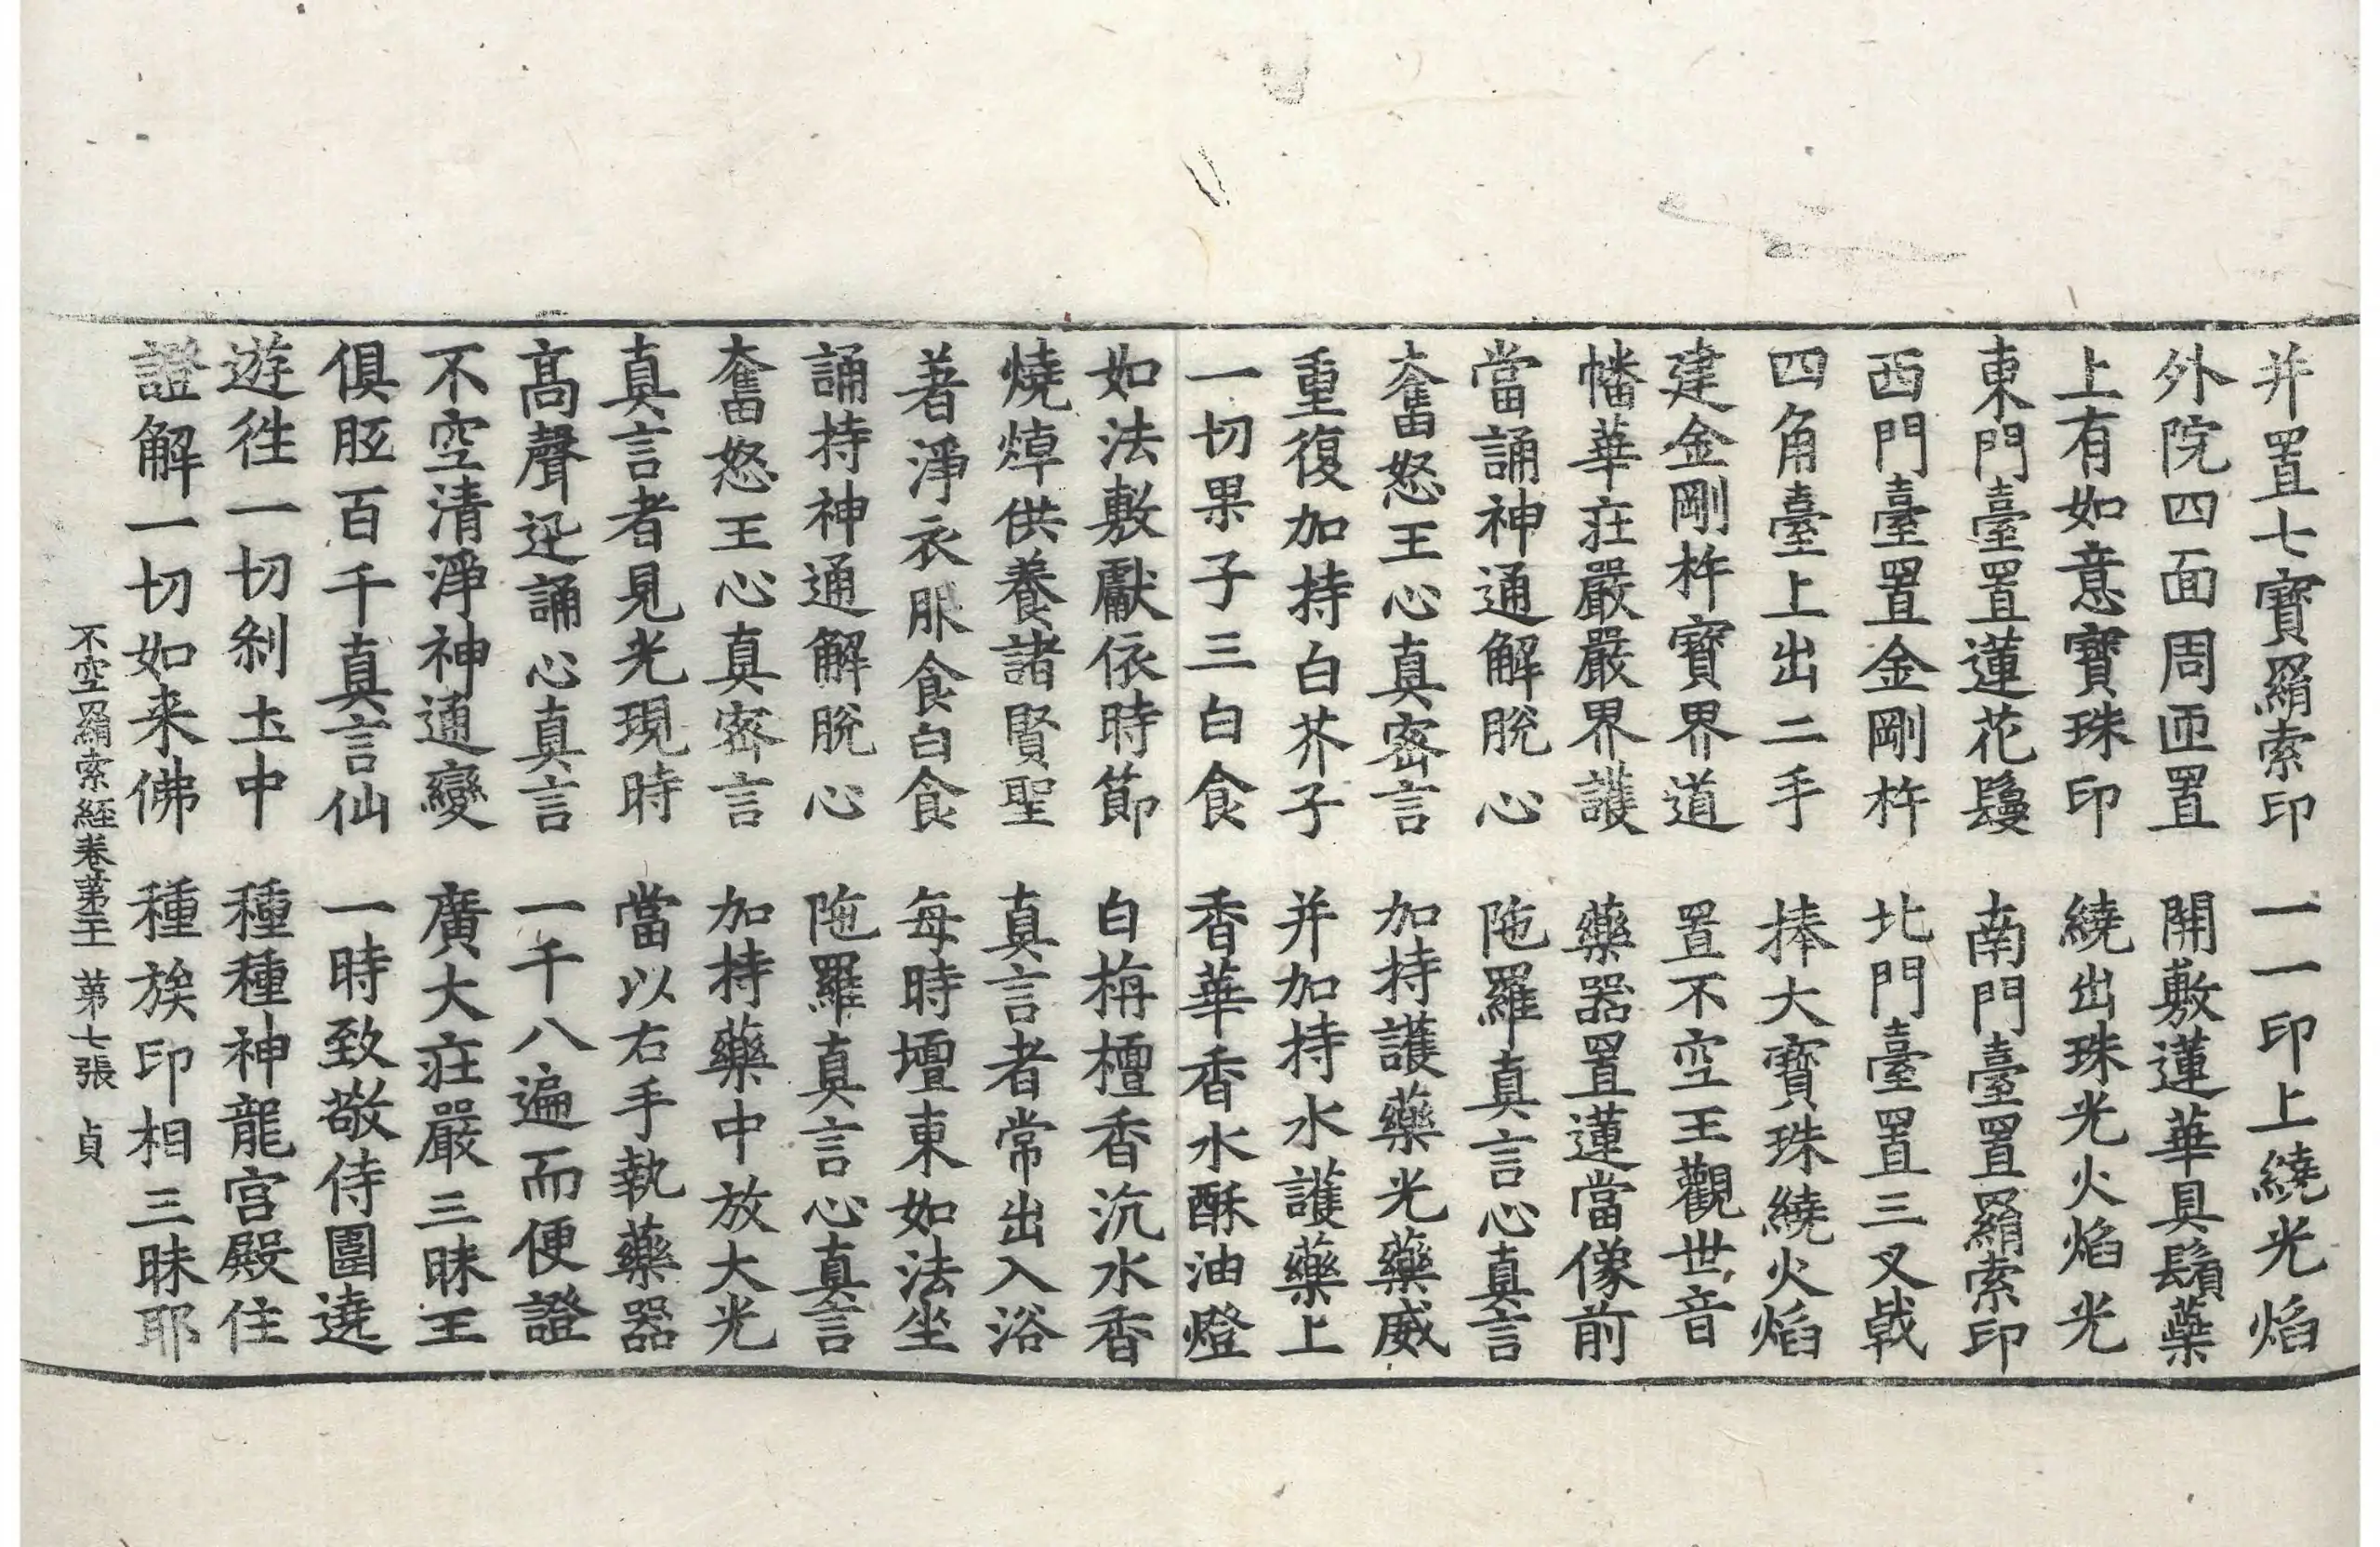 并置七寶羂索印　一一印上繞光焰
外院四面周匝置　開敷蓮華具鬚蘂
上有如意寶珠印　繞出珠光火焰光
東門臺置蓮花鬘　南門臺置羂索印
西門臺置金剛杵　北門臺置三叉戟
四角臺上出二手　捧大寶珠繞火焰
建金剛杵寶界道　置不空王觀世音
幡華莊嚴嚴界護　藥器置蓮當像前
當誦神通解脫心　陁羅真言心真言
奮怒王心真密言　加持護藥光藥威
重復加持白芥子　并加持水護藥上
一切果子三白食　香華香水酥油燈
如法敷獻依時節　白栴檀香沉水香
燒焯供養諸賢聖　真言者常出入浴
著淨衣服食白食　每時壇東如法坐
誦持神通解脫心　陁羅真言心真言
奮怒王心真密言　加持藥中放大光
真言者見光現時　當以右手執藥器
高聲迅誦心真言　一千八遍而便證
不空清淨神通變　廣大莊嚴三昧王
俱胝百千真言仙　一時致敬侍圍遶
遊往一切剎土中　種種神龍宮殿住
證解一切如来佛　種族印相三昧耶
不空羂索経卷第三十　第七張　貞